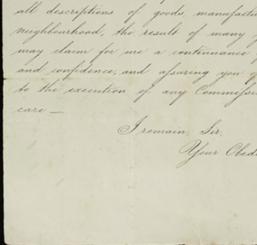 all descriptions of goods, manufactu
neighbourhood, the result of many
may claim for me a continuance
and confidence, and assuring you
to the execution of any Commission
care —
I remain, Sir,
Your Obed